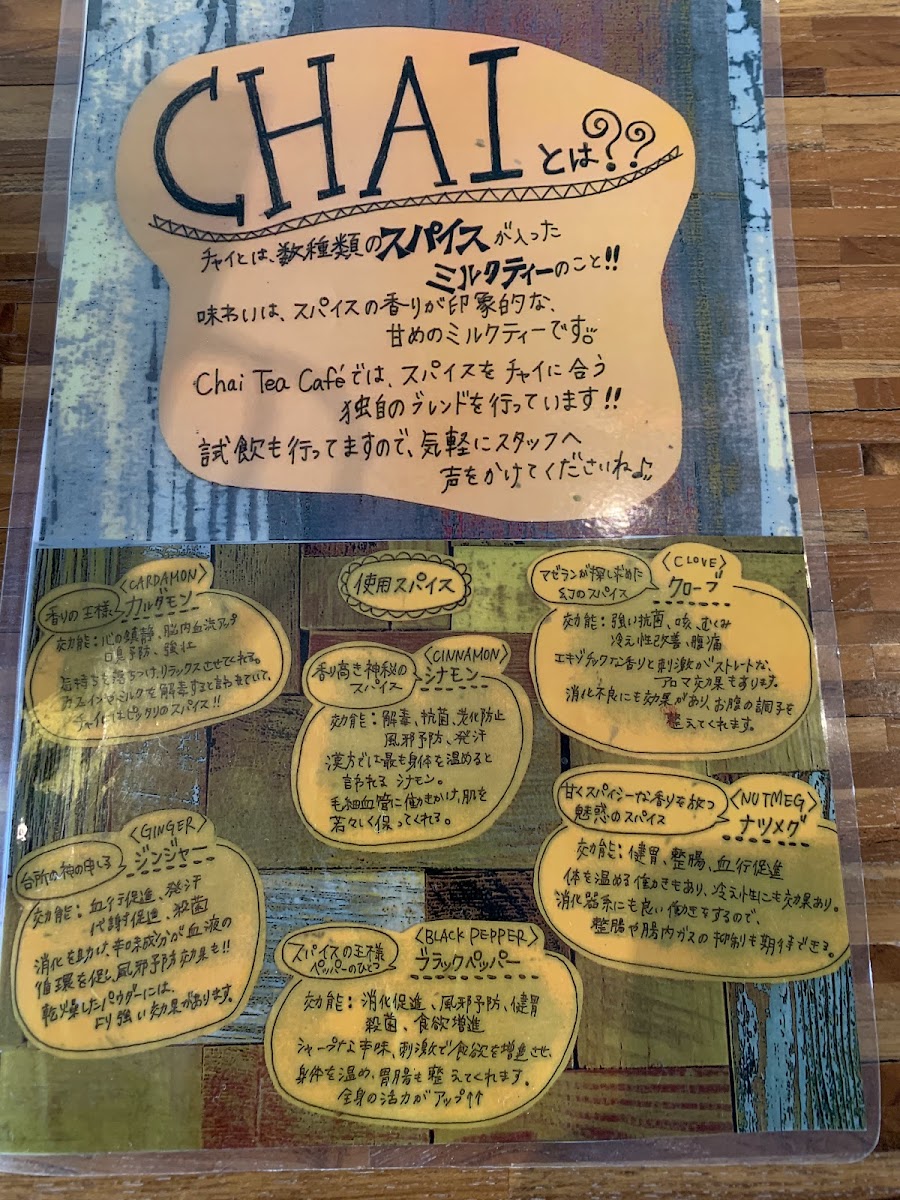 CHAI とは??
チャイとは、数種類のスパイスが入った
ミルクティーのこと!!
味わいは、スパイスの香りが印象的な、
甘めのミルクティーです。
Chai Tea Caféでは、スパイスをチャイに合う
独自のブレンドを行っています!!
試飲も行ってますので、気軽にスタッフへ
声をかけてくださいね♪
使用スパイス
〈CARDAMON〉
香りの王様
カルダモン
効能:心の鎮静、脳内血流アップ
口臭予防、強壮
気持ちを落ちつけ、リラックスさせてくれる。
カフェインやミルクを解毒すると言われていて、
チャイにはピッタリのスパイス!!
〈CINNAMON〉
香り高き神秘の
スパイス
シナモン
効能:解毒、抗菌、老化防止
風邪予防、発汗
漢方では最も身体を温めると
言われる シナモン。
毛細血管に働きかけ、肌を
若々しく保ってくれる。
〈CLOVE〉
マゼランが探し求めた
幻のスパイス
クローブ
効能:強い抗菌、咳、むくみ
冷え性改善、腹痛
エキゾチックな香りと刺激がストレートな、
アロマ効果もあります。
消化不良にも効果があり、お腹の調子を
整えてくれます。
〈GINGER〉
台所の神の申し子
ジンジャー
効能:血行促進、発汗
代謝促進、殺菌
消化を助け、辛味成分が血液の
循環を促し、風邪予防効果も!!
乾燥したパウダーには、
より強い効果があります。
〈BLACK PEPPER〉
スパイスの王様
ペッパーのひとつ
ブラックペッパー
効能:消化促進、風邪予防、健胃
殺菌、食欲増進
シャープな辛味、刺激で食欲を増進させ、
身体を温め、胃腸も整えてくれます。
全身の活力がアップ↑↑
〈NUTMEG〉
甘くスパイシーな香りを放つ
魅惑のスパイス
ナツメグ
効能:健胃、整腸、血行促進
体を温める働きもあり、冷え性にも効果あり。
消化器系にも良い働きをするので、
整腸や腸内ガスの抑制も期待できる。